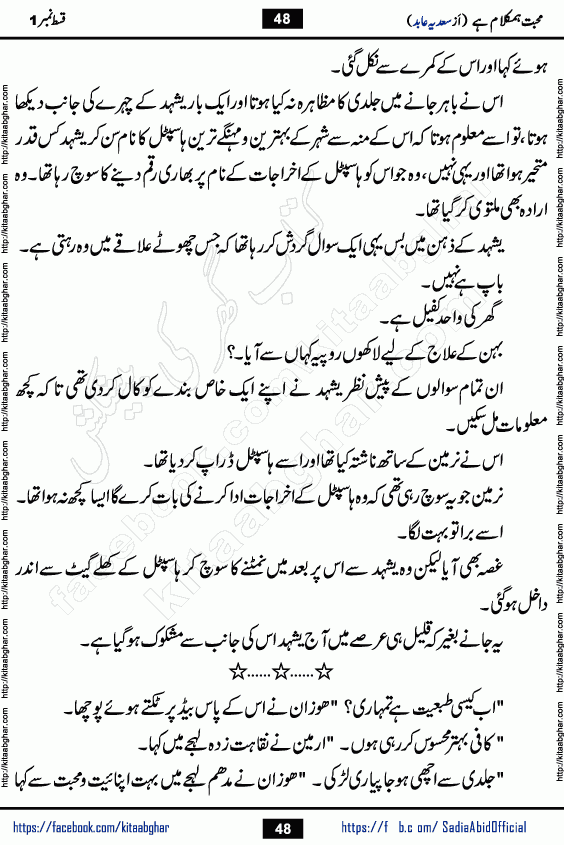 محبت ہمکلام ہے (از سعدیہ عابد) 48 قسط نمبر 1
ہوئے کہا اور اس کے کمرے سے نکل گئی۔
اس نے باہر جانے میں جلدی کا مظاہرہ نہ کیا ہوتا اور ایک بار یشہد کے چہرے کی جانب دیکھا
ہوتا، تو اسے معلوم ہوتا کہ اس کے منہ سے شہر کے بہترین و مہنگے ترین ہاسپٹل کا نام سن کر یشہد کس قدر
متحیر ہوا تھا اور یہی نہیں، وہ جو اس کو ہاسپٹل کے اخراجات کے نام پر بھاری رقم دینے کا سوچ رہا تھا۔ وہ
ارادہ بھی ملتوی کر گیا تھا۔
یشہد کے ذہن میں بس یہی ایک سوال گردش کر رہا تھا کہ جس چھوٹے علاقے میں وہ رہتی ہے۔
باپ ہے نہیں۔
گھر کی واحد کفیل ہے۔
بہن کے علاج کے لیے لاکھوں روپیہ کہاں سے آیا۔؟
ان تمام سوالوں کے پیش نظر یشہد نے اپنے ایک خاص بندے کو کال کر دی تھی تا کہ کچھ
معلومات مل سکیں۔
اس نے نرمین کے ساتھ ناشتہ کیا تھا اور اسے ہاسپٹل ڈراپ کر دیا تھا۔
نرمین جو یہ سوچ رہی تھی کہ وہ ہاسپٹل کے اخراجات ادا کرنے کی بات کرے گا ایسا کچھ نہ ہوا تھا۔
اسے برا تو بہت لگا۔
غصہ بھی آیا لیکن وہ یشہد سے اس پر بعد میں نمٹنے کا سوچ کر ہاسپٹل کے کھلے گیٹ سے اندر
داخل ہو گئی۔
یہ جانے بغیر کہ قلیل ہی عرصے میں آج یشہد اس کی جانب سے مشکوک ہو گیا ہے۔
☆......☆......☆
"اب کیسی طبعیت ہے تمہاری؟ "ھوزان نے اس کے پاس بیڈ پر ٹکتے ہوئے پوچھا۔
" کافی بہتر محسوس کر رہی ہوں۔ "ارمین نے نقاہت زدہ لہجے میں کہا۔
"جلدی سے اچھی ہو جا پیاری لڑکی۔ "ھوزان نے مدھم لہجے میں بہت اپنائیت و محبت سے کہا
https://facebook.com/kitaabghar 48 https://f b.c om/ SadiaAbidOfficial
http://kitaabghar.com http://kitaabghar.com http://kitaabghar.com http://kitaabghar.com http://kitaabghar.com http://kitaabghar.com http://kitaabghar.com http://kitaabghar.com
http://kitaabghar.com http://kitaabghar.com http://kitaabghar.com http://kitaabghar.com http://kitaabghar.com http://kitaabghar.com http://kitaabghar.com http://kitaabghar.com
کتاب گھر کی پیشکش
kitaabghar.com
facebook.com/kitaabghar